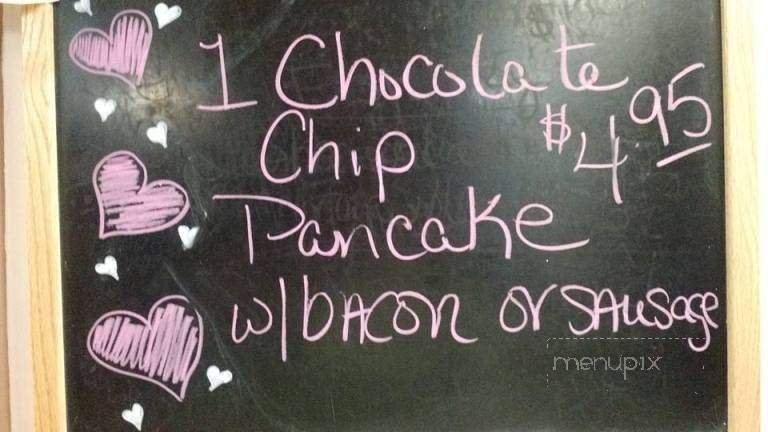 1 Chocolate
Chip $4.95
Pancake
w/bacon or sausage
menupix